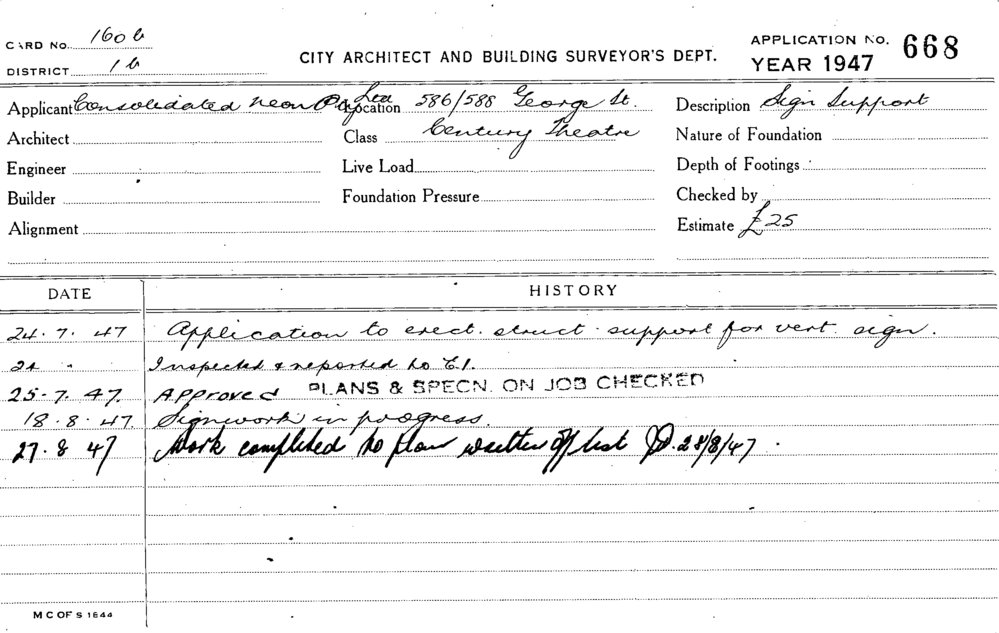 CARD No. 160b
DISTRICT 1b
CITY ARCHITECT AND BUILDING SURVEYOR'S DEPT.
APPLICATION No. 668
YEAR 1947
Applicant Consolidated Neon Pty Ltd Location 586/588 George St. Description Sign Support
Architect Class Century Theatre Nature of Foundation
Engineer Live Load Depth of Footings
Builder Foundation Pressure Checked by
Alignment Estimate £25
DATE HISTORY
24.7.47 Application to erect struct. support for vert sign.
24 " Inspected & reported to C.I.
25.7.47. Approved PLANS & SPECN. ON JOB CHECKED
18.8.47 Signwork in progress.
27.8 47 Work completed to plan written off list 28/8/47.
M C OF S 1644